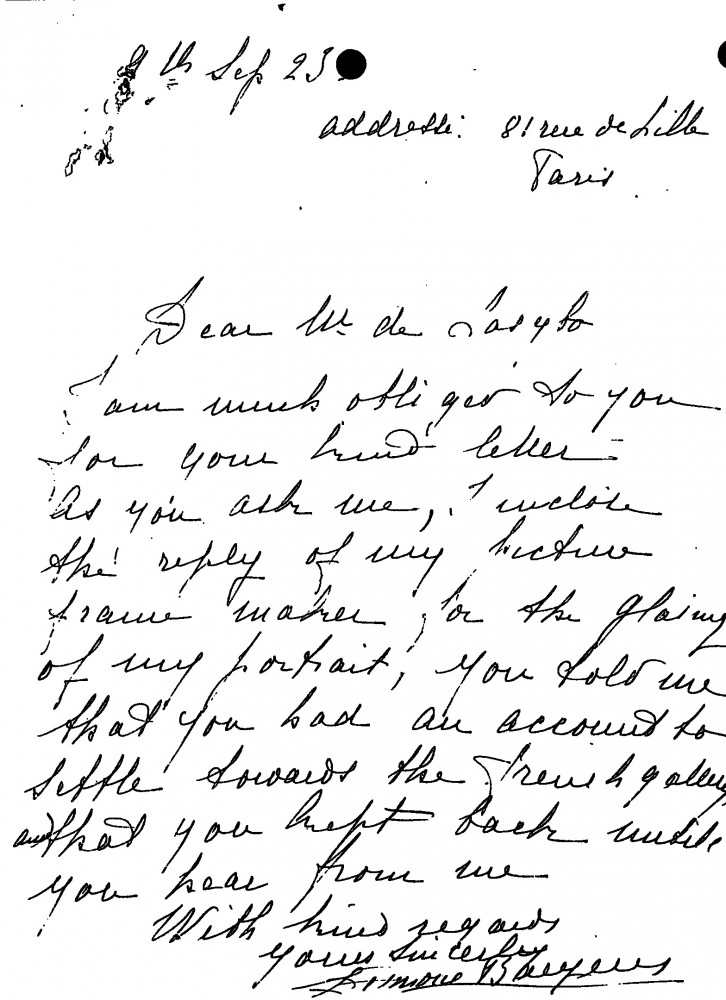 9th Sep 23
addresse: 81 rue de Lille
Paris
Dear Mr de Laszlo
I am much obliged to you
for your kind letter
As you ask me, I inclose
the reply of my picture
frame maker for the glazing
of my portrait, you told me
that you had an account to
settle towards the French gallery
and that you kept back untile
you hear from me
With kind regards
yours sincerley
Simone